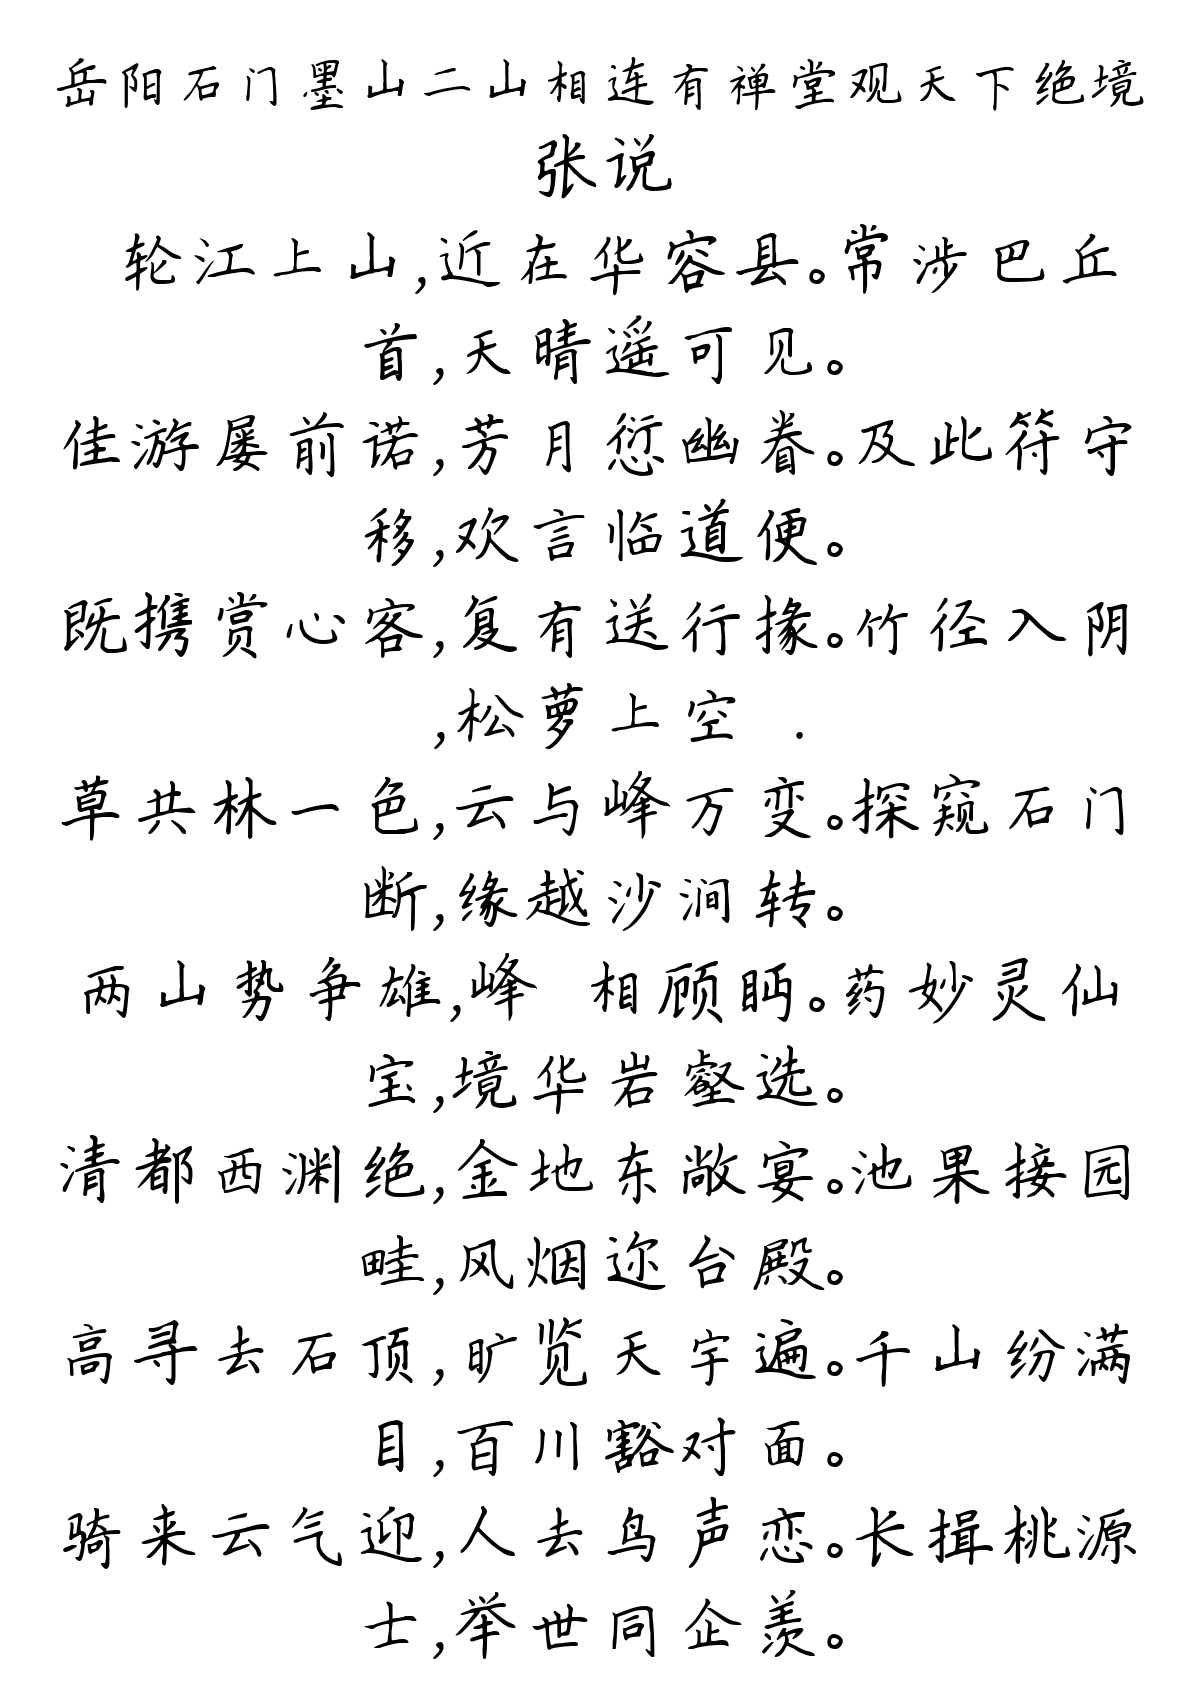 岳阳石门墨山二山相连有禅堂观天下绝境
张说
轮江上山,近在华容县。常涉巴丘
首,天晴遥可见。
佳游屡前诺,芳月愆幽眷。及此符守
移,欢言临道便。
既携赏心客,复有送行掾。竹径入阴
,松萝上空 .
草共林一色,云与峰万变。探窥石门
断,缘越沙涧转。
两山势争雄,峰 相顾眄。药妙灵仙
宝,境华岩壑选。
清都西渊绝,金地东敞宴。池果接园
畦,风烟迩台殿。
高寻去石顶,旷览天宇遍。千山纷满
目,百川豁对面。
骑来云气迎,人去鸟声恋。长揖桃源
士,举世同企羡。